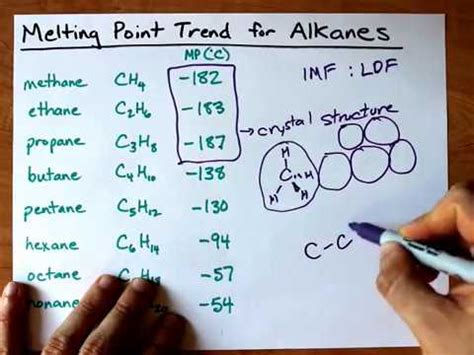 Melting Point Trend for Alkanes
MP (°C)
methane CH4 -182
ethane C2H6 -183
propane C3H8 -187
butane C4H10 -138
pentane C5H12 -130
hexane C6H14 -94
octane -57
-54
IMF : LDF
crystal structure
H
C H
H H
C-C